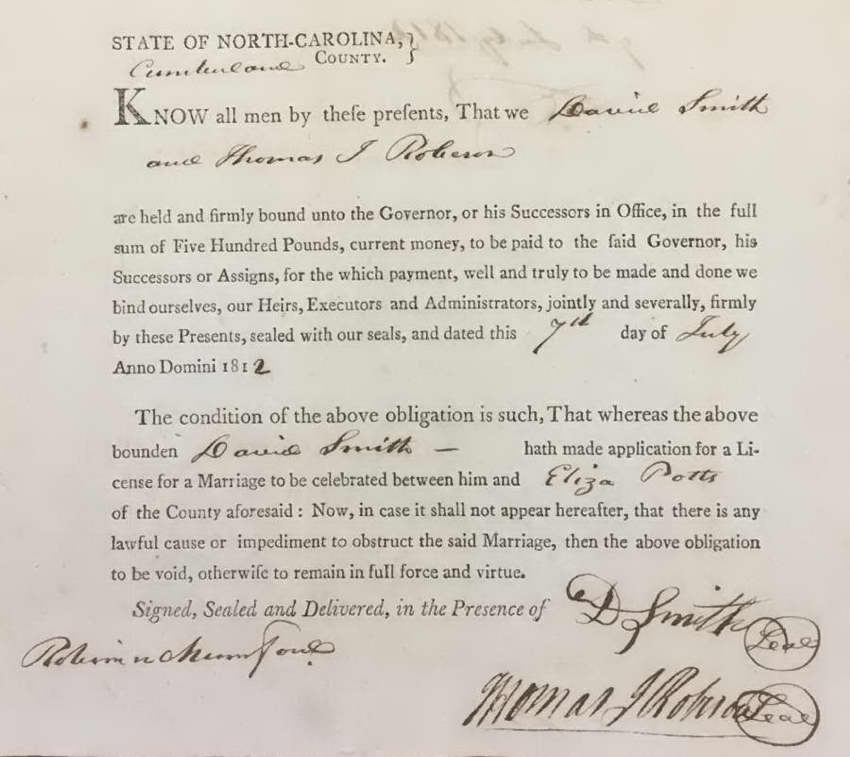 STATE OF NORTH-CAROLINA,}
Cumberland COUNTY.
KNOW all men by theſe preſents, That we David Smith
and Thomas J Roberson
are held and firmly bound unto the Governor, or his Successors in Office, in the full
sum of Five Hundred Pounds, current money, to be paid to the ſaid Governor, his
Successors or Assigns, for the which payment, well and truly to be made and done we
bind ourselves, our Heirs, Executors and Administrators, jointly and severally, firmly
by these Presents, sealed with our seals, and dated this 7th day of July
Anno Domini 1812
The condition of the above obligation is such, That whereas the above
bounden David Smith — hath made application for a Li-
cense for a Marriage to be celebrated between him and Eliza Potts
of the County aforesaid : Now, in case it shall not appear hereafter, that there is any
lawful cause or impediment to obstruct the said Marriage, then the above obligation
to be void, otherwiſe to remain in full force and virtue.
Signed, Sealed and Delivered, in the Presence of
D Smith Seal
Thomas J Roberson Seal